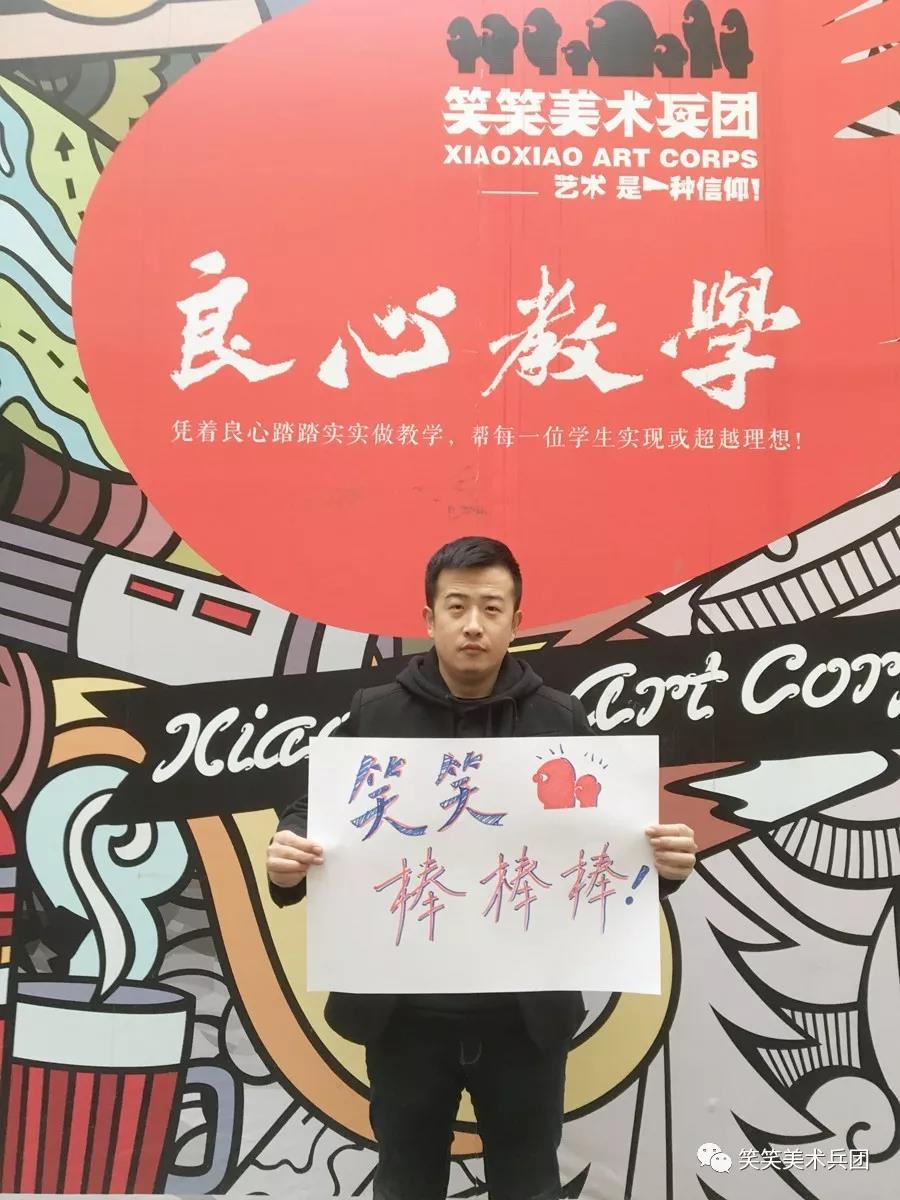 笑笑美术兵团
XIAOXIAO ART CORPS
—— 艺术 是一种信仰!
良心教學
凭着良心踏踏实实做教学，帮每一位学生实现或超越理想!
Art Cor
笑笑
棒棒棒!
笑笑美术兵团